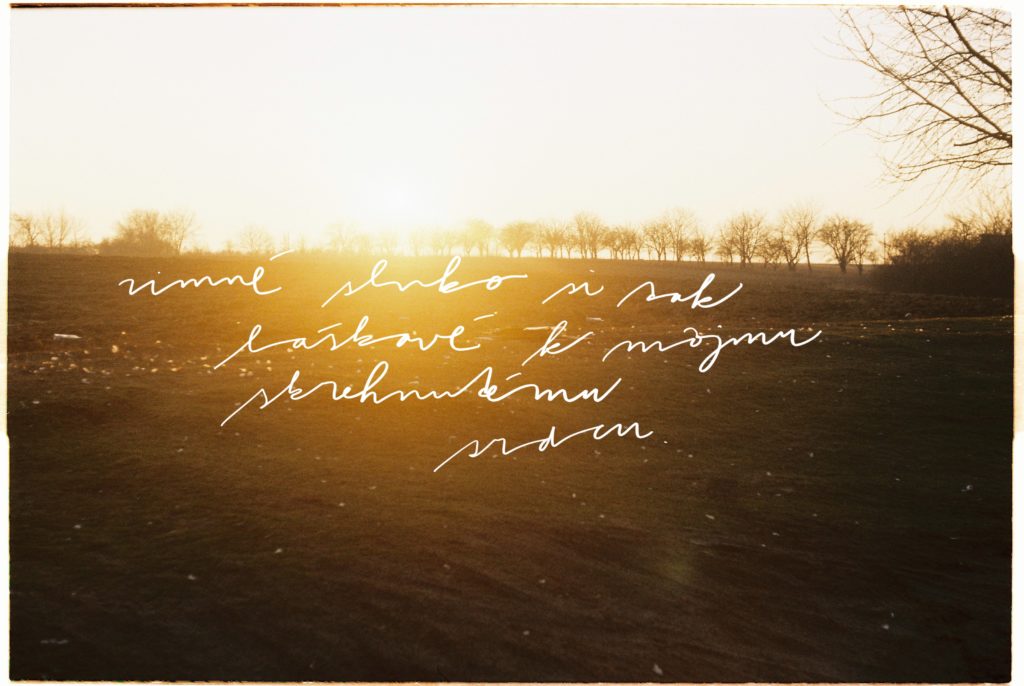 zimné slnko si tak
láskavé k môjmu
skrehnutému
srdcu.